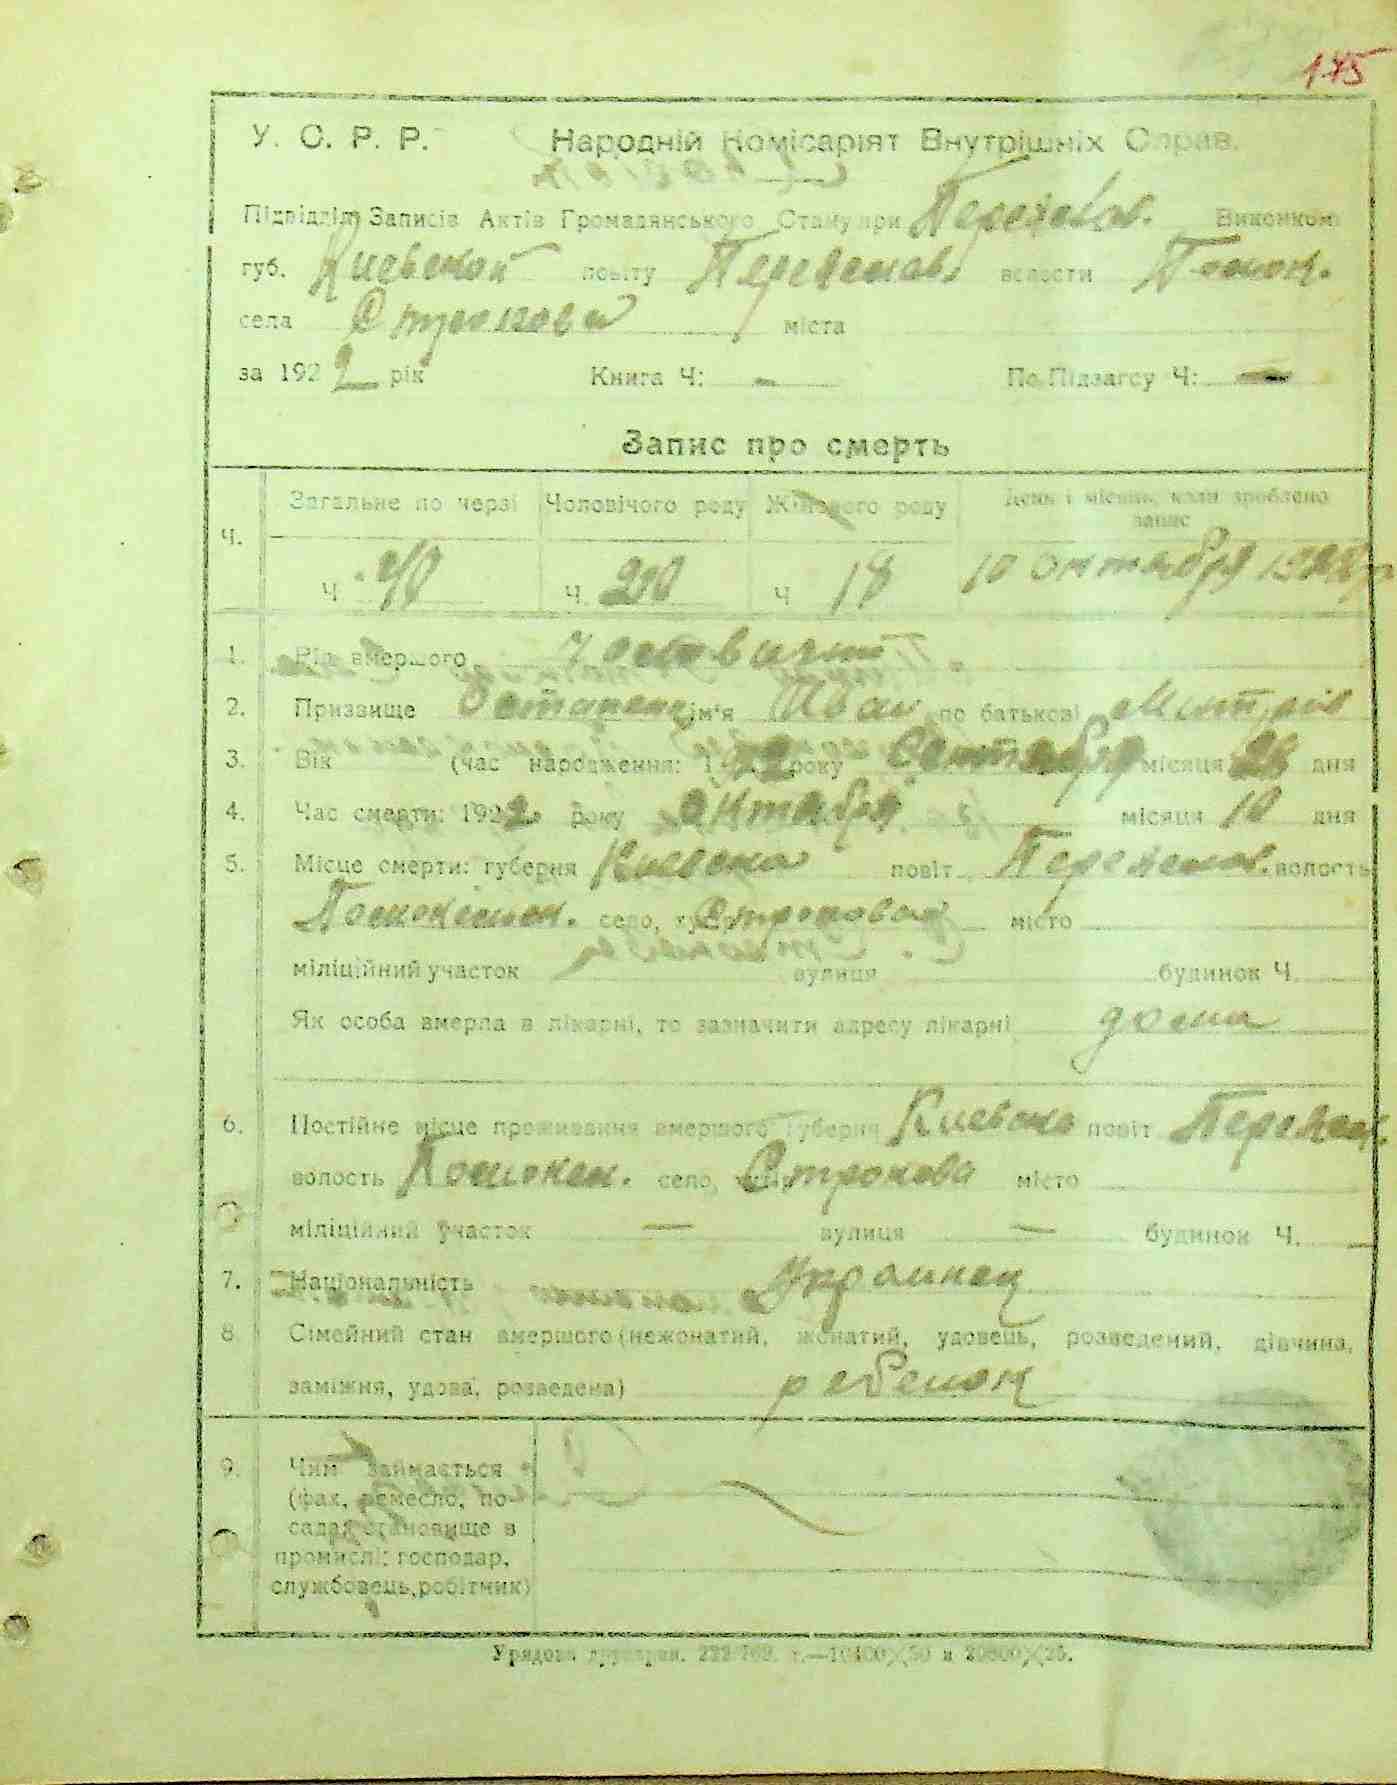 175
У. С. Р. Р. Народній Комісаріят Внутрішніх Справ.
Підвідділ Записів Актів Громадянського Стану при Переяслав. Виконком
губ. Киевской повіту Переяслав. волости
села Строкови міста
за 1922 рік Книга Ч: - По Підзагсу Ч: -
Запис про смерть
Ч. Загальне по черзі Чоловічого роду Жіночого роду День і місяць, коли зроблено
запис
Ч. Ч. 20 Ч 18 10 октября 1922 г
1. Рід вмершого
2. Призвище Остапенко ім'я Иван по батькові Митрів
3. Вік (час народження: 1922 року Сентября місяця 26 дня
4. Час смерти: 1922 року октября місяця 10 дня
5. Місце смерти: губерня Киевска повіт Переяслав. волость
село, Строкова місто
міліційний участок вулиця будинок Ч.
Як особа вмерла в лікарні, то зазначити адресу лікарні дома
6. Постійне місце проживання вмершого губерня Киевска повіт Переяс.
волость село, Строкова місто
міліційний участок — вулиця — будинок Ч. —
7. Національність Украинец
8. Сімейний стан вмершого (нежонатий, жонатий, удовець, розведений, дівчина,
заміжня, удова, розведена) ребенок
9. Чим займається
(фах, ремесло, по-
сада, становище в
промислі: господар,
службовець, робітник)
Урядова друкарня.